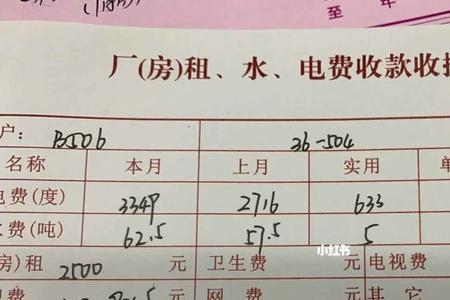 至 年
厂(房)租、水、电费收款收
户: B506 36-504
名称 本月 上月 实用 单
电费(度) 3349 2716 633
费(吨) 62.5 57.5 5
房)租 2500 元 卫生费 元 电视费
元 网费 元 其它
小红书